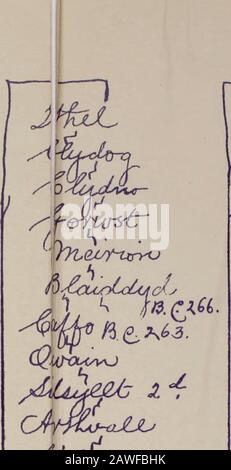 Ithel
Clydog
Clydno
Gorwst
Meirion
Blaiddyd
B.C. 266.
Cuffo B.C. 263.
Owain
Silsyllt 2d.
Arthvall
alamy
Image ID: 2AWFBHK
www.alamy.com